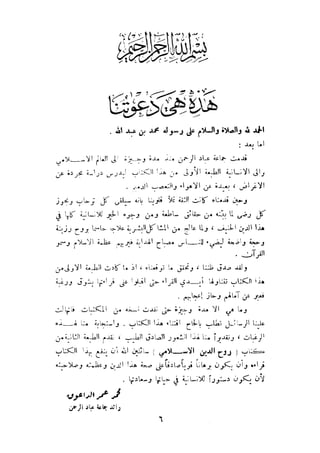 بسم الله الرحمن الرحيم
هذه هي دعوتنا
الحمد لله والصلاة والسلام على رسوله محمد بن عبد الله .
اما بعد :
قدمت جماعة عباد الرحمن منذ مدة وجيزة الى العالم الاسلامي
والى الانسانية الطبعة الأولى من هذا الكتاب ليدرس دراسة مجردة عن
الاغراض ، بعيدة عن الاهواء والتعصب
وحين قدمناه كانت الثقة تملأ قلوبنا بأنه سيلقى كل ترحاب ويحوز
كل رضى لما بيّنه من حقائق ساطعة ومن وجوه الخير للانسانية كلها في
هذا الدين الحنيف ، ولما عالج من المشاكل البشرية علاج حاسما بروح رزينة
وحجة واضحة ليضيء للناس مصباح الهداية فيريهم عظمة الاسلام وسمو
القرآن .
ولقد صدق ظننا ، وتحقق ما توقعناه ، اذ ما كادت الطبعة الاولى من
هذا الكتاب تتناولها أيدي القراء حتى اقبلوا على قراءتها بشوق ورغبة
فعبر عن آمالهم وحاز إعجابهم .
وما هي الا مدة وجيزة حتى نفدت نسخه من المكتبات فانهالت
علينا الرسائل تطلب بالحاح اقتناء هذا الكتاب . واستجابة منا لهذه
الرغبات ، وتقديراً منا لهذا الشعور الصادق الطيب ، نقدم الطبعة الثانية من
كتاب ( روح الدين الاسلامي ) سائلين الله أن ينفع بهذا الكتاب
قراءه وأن يكون برهاناً قوياً صادقاً على صحة هذا الدين وعظمته وصلاحيته
لأن يكون دستوراً للانسانية في حياتها وسعادتها .
محمد عمر الداعوق
رائد جماعة عباد الرحمن
٦